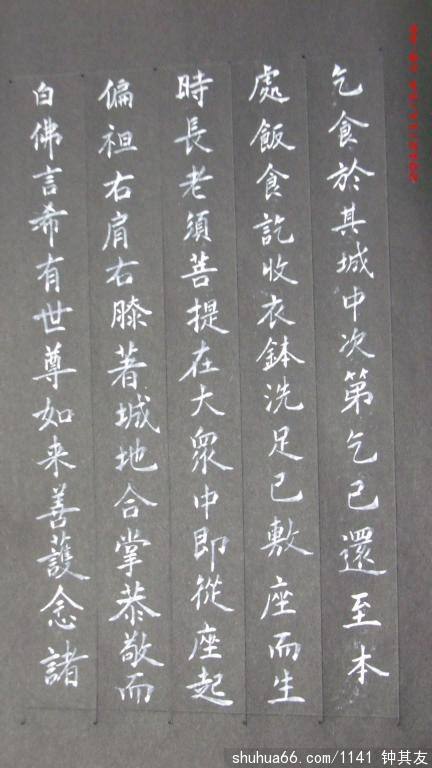 乞食於其城中次第乞已還至本
處飯食訖收衣鉢洗足已敷座而生
時長老須菩提在大眾中即從座起
偏袒右肩右膝著城地合掌恭敬而
白佛言希有世尊如来善護念諸
shuhua66.com/1141 钟其友